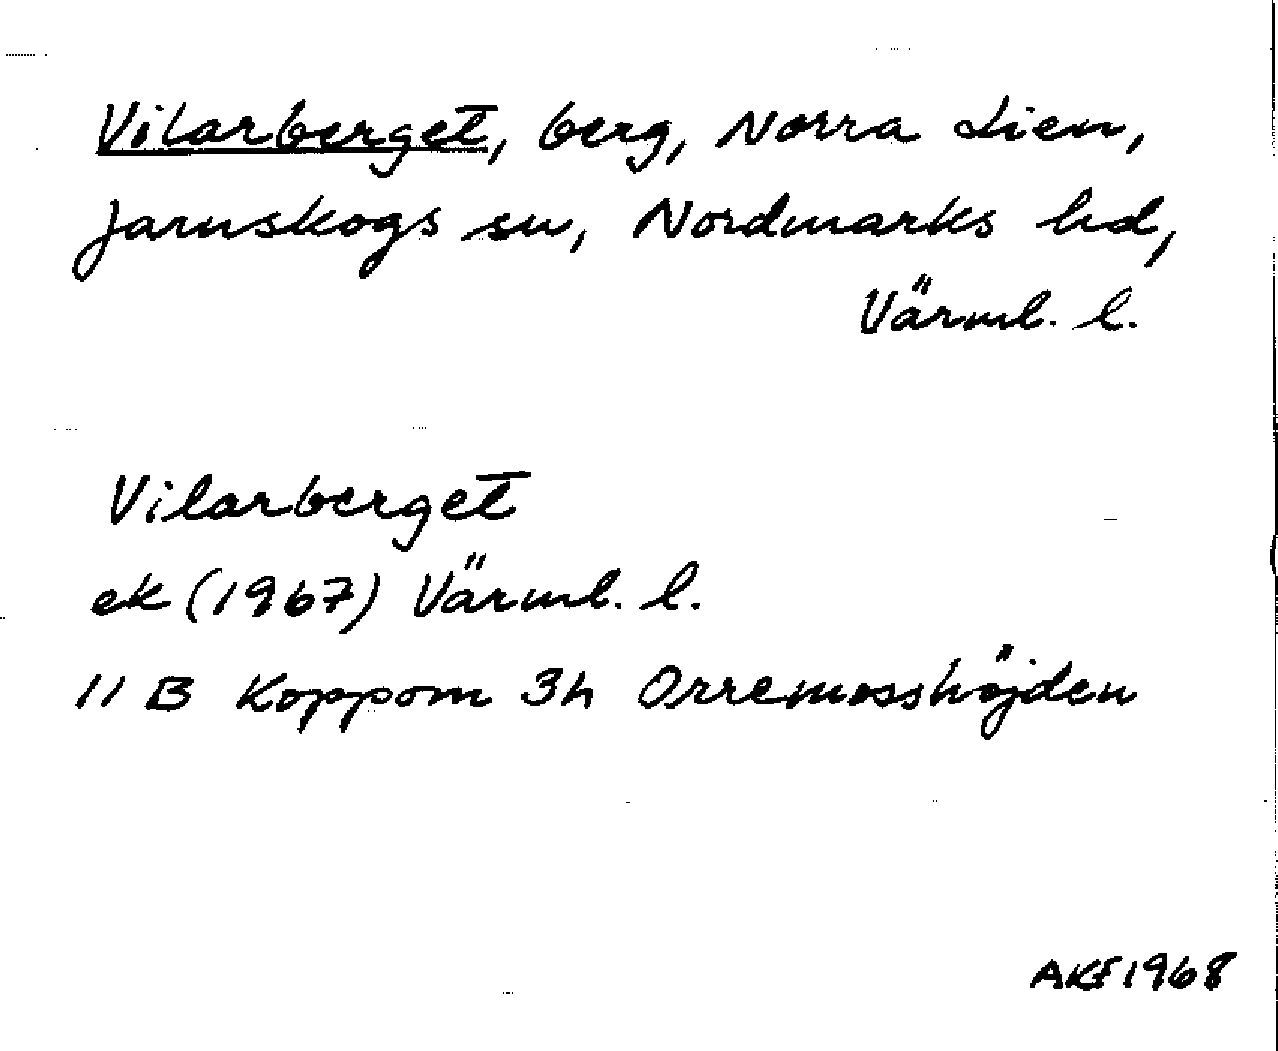 Vilarberget, berg, Norra Lien,
Järnskogs sn, Nordmarks hd,
Värml. l.
Vilarberget
ek (1967) Värml. l.
11 B Koppom 3h Orremosshöjden
AKF 1968